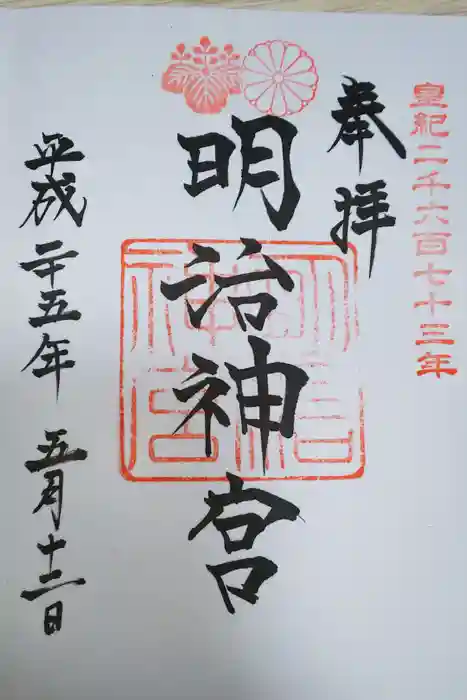 皇紀二千六百七十三年
奉拝
明治神宮
明治
神宮
平成二十五年 五月十三日